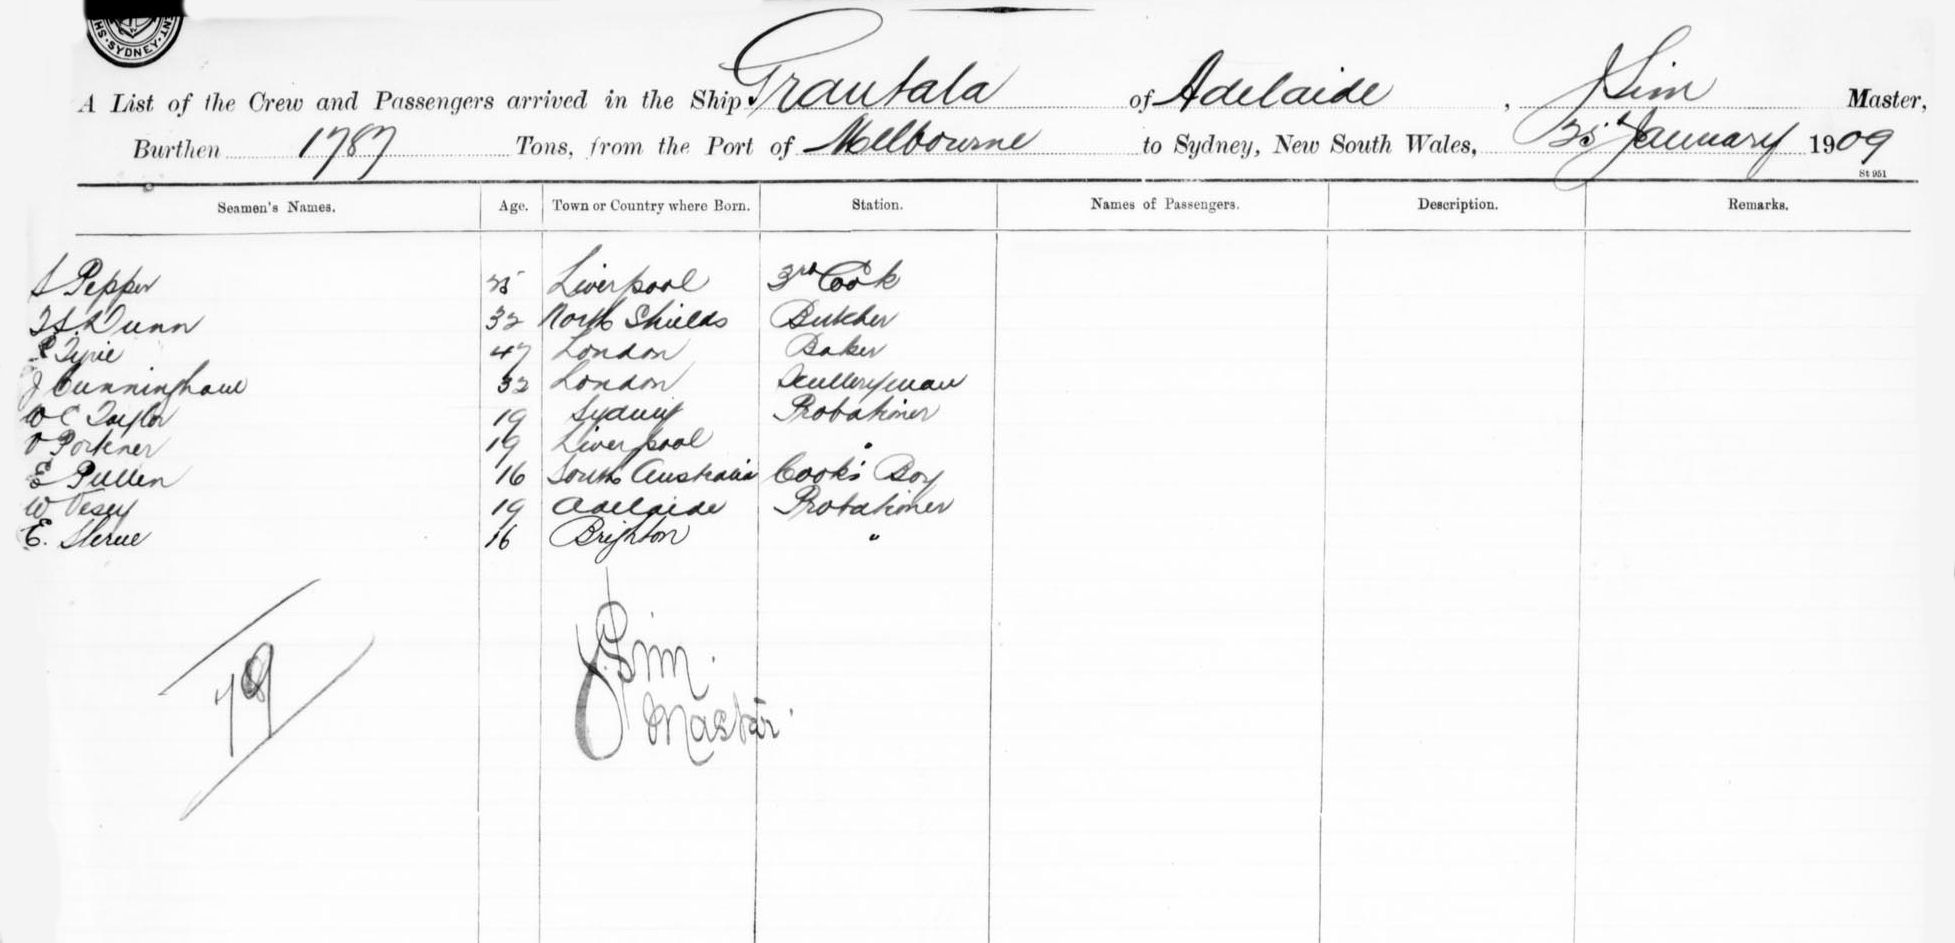 SYDNEY
A List of the Crew and Passengers arrived in the Ship Grantala of Adelaide, J Sim Master,
Burthen 1787 Tons, from the Port of Melbourne to Sydney, New South Wales, 25th January 1909
St 951
Seamen's Names. Age. Town or Country where Born. Station. Names of Passengers. Description. Remarks.
S Pepper 25 Liverpool 3rd Cook
Dunn 32 North Shields Butcher
Tyrie 47 London Baker
J Cunningham 32 London Sculleryman
W C Taylor 19 Sydney Probationer
Portner 19 Liverpool "
E Pullen 16 South Australia Cook's Boy
W Vesey 19 Adelaide Probationer
E. 16 Brighton "
79
J. Sim.
Master.